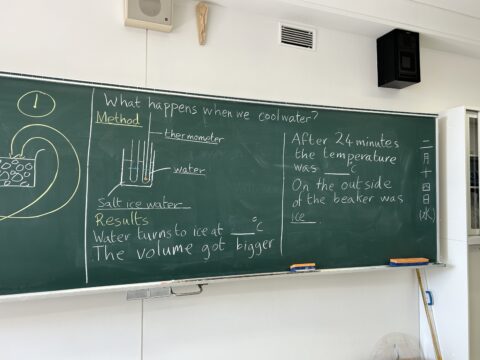 What happens when we cool water?
Method
thermometer
water
Salt ice water
Results
Water turns to ice at ___°C
The volume got bigger
After 24 minutes
the temperature
was ___°C
On the outside
of the beaker was
ice.
二月十四日(水)